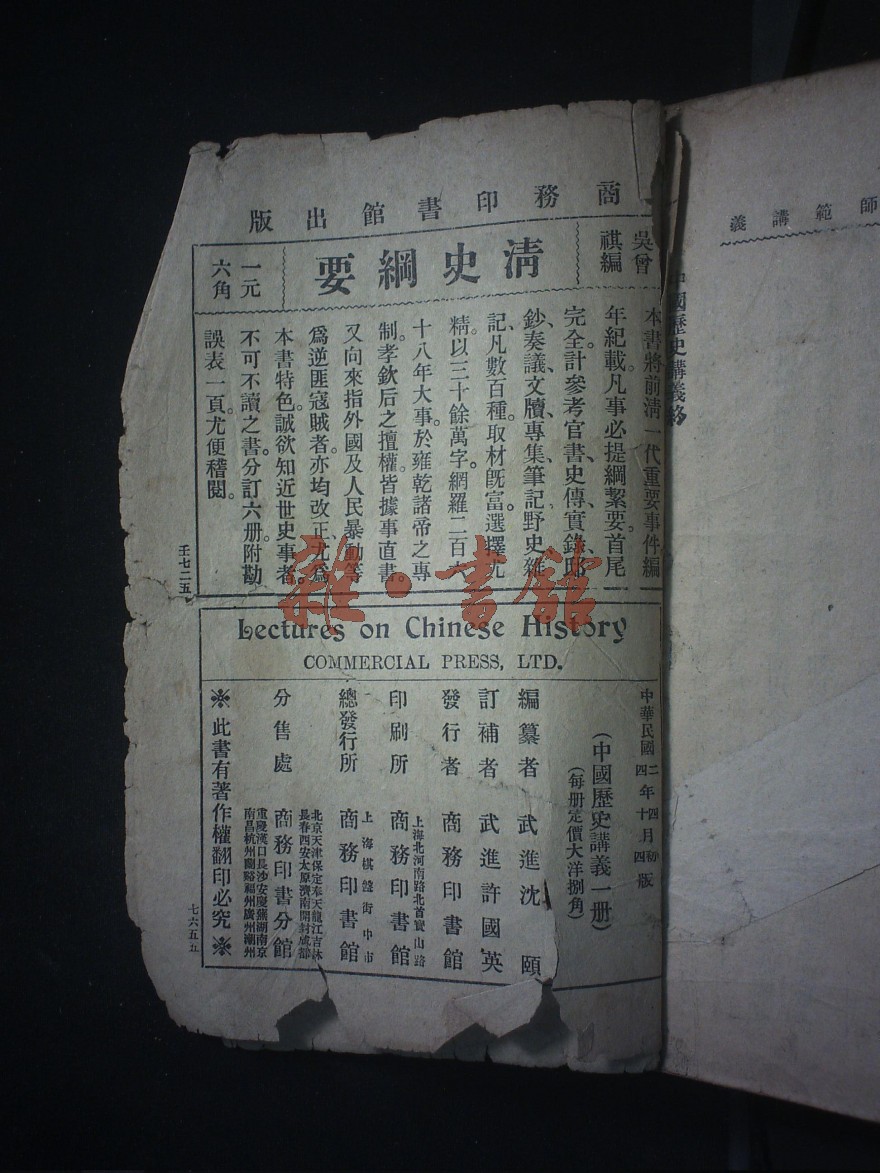 商務印書館出版
吳曾
祺編
清史綱要
一元
六角
本書將前清一代重要事件編
年紀載。凡事必提綱絜要。首尾
完全計參考官書、史傳、實錄、邸
鈔、奏議、文牘、專集、筆記、野史、雜
記、凡數百種。取材旣富。選擇尤
精。以三十餘萬字。網羅二百六
十八年大事。於雍乾諸帝之專
制。孝欽后之擅權。皆據事直書。
又向來指外國及人民暴動等
爲逆匪寇賊者。亦均改正。尤爲
本書特色。誠欲知近世史事者。
不可不讀之書。分訂六册。附勘
誤表一頁。尤便稽閱。
壬七二五
雜·書館
Lectures on Chinese History
COMMERCIAL PRESS, LTD.
中華民國二年四月初版
四年十四版
(中國歷史講義一册)
(每册定價大洋捌角)
編纂者 武進沈頤
訂補者 武進許國英
發行者 商務印書館
印刷所 上海北河南路北首寶山路 商務印書館
總發行所 上海棋盤街中市 商務印書館
分售處 北京天津保定奉天龍江吉林
長春西安太原濟南開封成都
商務印書分館
重慶漢口長沙安慶蕪湖南京
南昌杭州蘭谿福州廣州潮州
※此書有著作權翻印必究※
七六五五
師範講義
中國歷史講義終